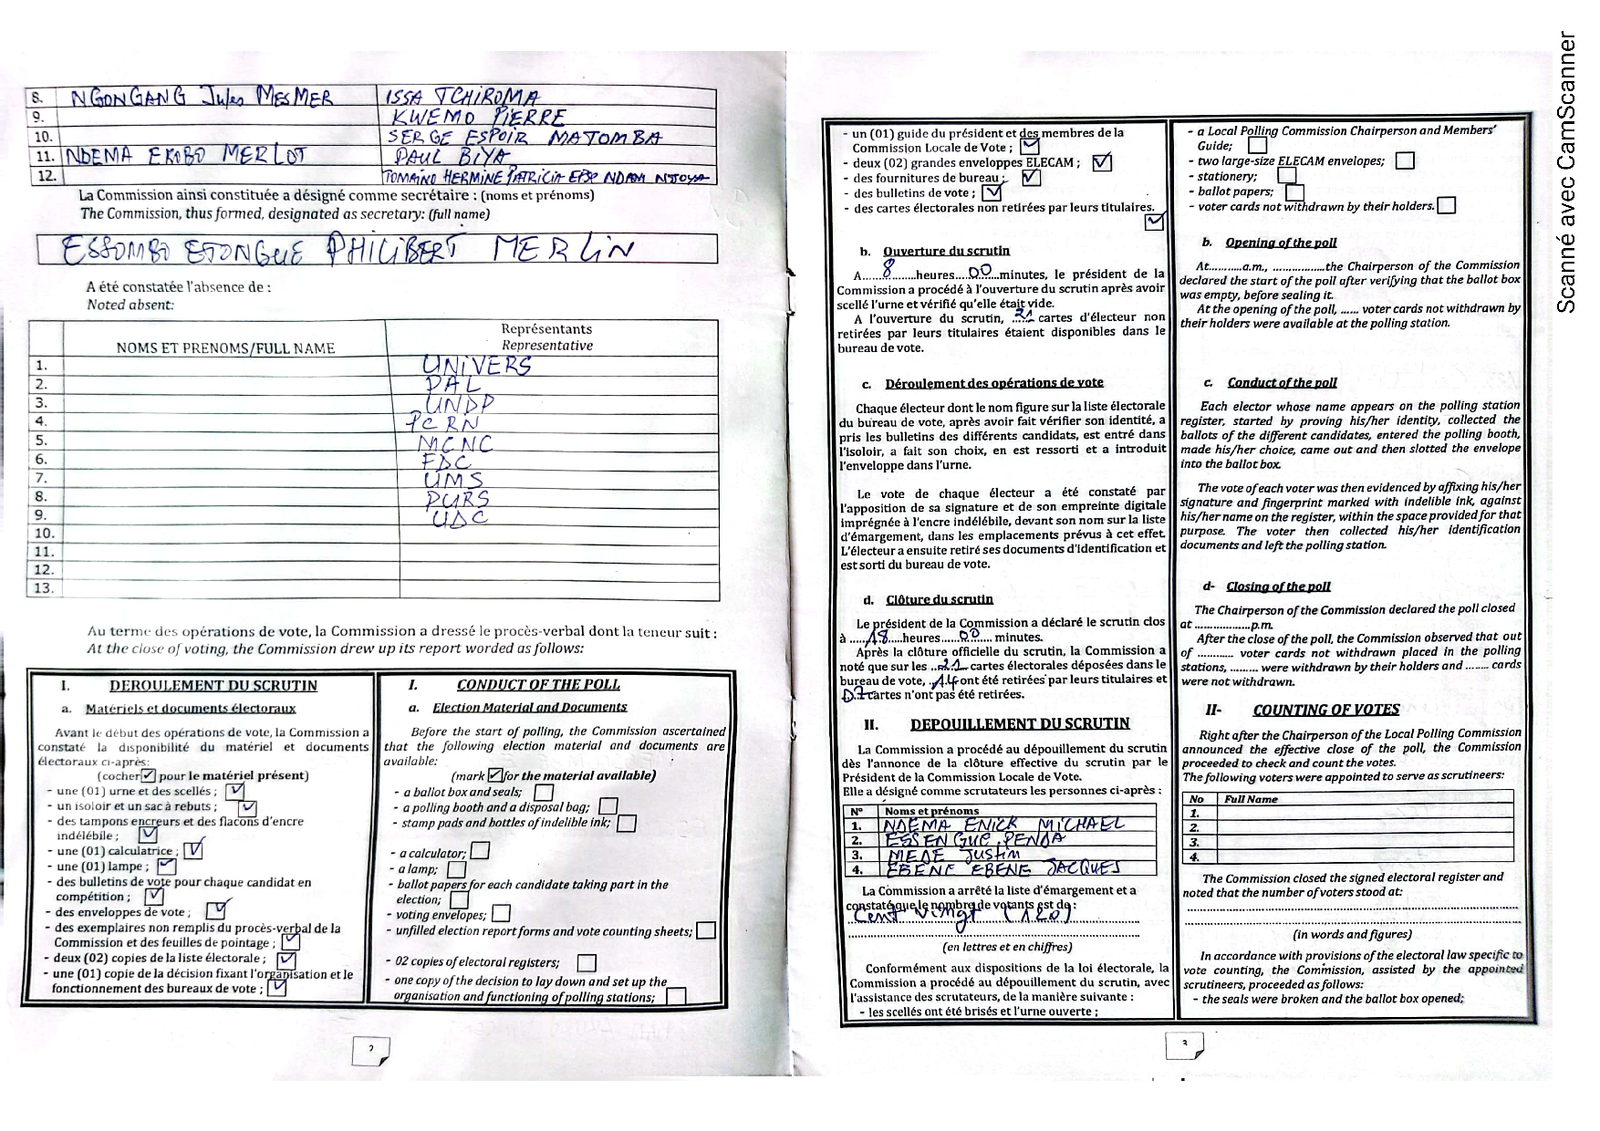 8. NGONGANG Jules MESMER ISSA TCHIROMA
9. KWEMO PIERRE
10. SERGE ESPOIR MATOMBA
11. NDEMA EKOBO MERLOT PAUL BIYA
12. TOMAINO HERMINE PATRICIA EPSE NDAM NJOYA
La Commission ainsi constituée a désigné comme secrétaire : (noms et prénoms)
The Commission, thus formed, designated as secretary: (full name)
ESSOMBO ETONGUE PHILIBERT MERLIN
A été constatée l'absence de :
Noted absent:
NOMS ET PRENOMS/FULL NAME Représentants
Representative
1. UNIVERS
2. PAL
3. UNDP
4. PCRN
5. MCNC
6. FDC
7. UMS
8. PURS
9. UDC
10.
11.
12.
13.
Au terme des opérations de vote, la Commission a dressé le procès-verbal dont la teneur suit :
At the close of voting, the Commission drew up its report worded as follows:
I. DEROULEMENT DU SCRUTIN
a. Matériels et documents électoraux
Avant le début des opérations de vote, la Commission a
constaté la disponibilité du matériel et documents
électoraux ci-après:
(cocher pour le matériel présent)
- une (01) urne et des scellés ;
- un isoloir et un sac à rebuts ;
- des tampons encreurs et des flacons d'encre
indélébile ;
- une (01) calculatrice ;
- une (01) lampe ;
- des bulletins de vote pour chaque candidat en
compétition ;
- des enveloppes de vote ;
- des exemplaires non remplis du procès-verbal de la
Commission et des feuilles de pointage ;
- deux (02) copies de la liste électorale ;
- une (01) copie de la décision fixant l'organisation et le
fonctionnement des bureaux de vote ;
I. CONDUCT OF THE POLL
a. Election Material and Documents
Before the start of polling, the Commission ascertained
that the following election material and documents are
available:
(mark for the material available)
- a ballot box and seals;
- a polling booth and a disposal bag;
- stamp pads and bottles of indelible ink;
- a calculator;
- a lamp;
- ballot papers for each candidate taking part in the
election;
- voting envelopes;
- unfilled election report forms and vote counting sheets;
- 02 copies of electoral registers;
- one copy of the decision to lay down and set up the
organisation and functioning of polling stations;
2
- un (01) guide du président et des membres de la
Commission Locale de Vote ;
- deux (02) grandes enveloppes ELECAM ;
- des fournitures de bureau ;
- des bulletins de vote ;
- des cartes électorales non retirées par leurs titulaires.
b. Ouverture du scrutin
A......8......heures....00....minutes, le président de la
Commission a procédé à l'ouverture du scrutin après avoir
scellé l'urne et vérifié qu'elle était vide.
A l'ouverture du scrutin, 21 cartes d'électeur non
retirées par leurs titulaires étaient disponibles dans le
bureau de vote.
c. Déroulement des opérations de vote
Chaque électeur dont le nom figure sur la liste électorale
du bureau de vote, après avoir fait vérifier son identité, a
pris les bulletins des différents candidats, est entré dans
l'isoloir, a fait son choix, en est ressorti et a introduit
l'enveloppe dans l'urne.
Le vote de chaque électeur a été constaté par
l'apposition de sa signature et de son empreinte digitale
imprégnée à l'encre indélébile, devant son nom sur la liste
d'émargement, dans les emplacements prévus à cet effet.
L'électeur a ensuite retiré ses documents d'identification et
est sorti du bureau de vote.
d. Clôture du scrutin
Le président de la Commission a déclaré le scrutin clos
à ....18....heures.....00..... minutes.
Après la clôture officielle du scrutin, la Commission a
noté que sur les ..21.. cartes électorales déposées dans le
bureau de vote, .14.ont été retirées par leurs titulaires et
07 cartes n'ont pas été retirées.
II. DEPOUILLEMENT DU SCRUTIN
La Commission a procédé au dépouillement du scrutin
dès l'annonce de la clôture effective du scrutin par le
Président de la Commission Locale de Vote.
Elle a désigné comme scrutateurs les personnes ci-après :
N° Noms et prénoms
1. NDEMA ENICK MICHAEL
2. ESSENGUE PENDA
3. MEDE Justin
4. EBENE EBENE JACQUES
La Commission a arrêté la liste d'émargement et a
constaté que le nombre de votants est de :
Cent Vingt (120)
(en lettres et en chiffres)
Conformément aux dispositions de la loi électorale, la
Commission a procédé au dépouillement du scrutin, avec
l'assistance des scrutateurs, de la manière suivante :
- les scellés ont été brisés et l'urne ouverte ;
- a Local Polling Commission Chairperson and Members'
Guide;
- two large-size ELECAM envelopes;
- stationery;
- ballot papers;
- voter cards not withdrawn by their holders.
b. Opening of the poll
At............a.m., ..................the Chairperson of the Commission
declared the start of the poll after verifying that the ballot box
was empty, before sealing it.
At the opening of the poll, ...... voter cards not withdrawn by
their holders were available at the polling station.
c. Conduct of the poll
Each elector whose name appears on the polling station
register, started by proving his/her identity, collected the
ballots of the different candidates, entered the polling booth,
made his/her choice, came out and then slotted the envelope
into the ballot box.
The vote of each voter was then evidenced by affixing his/her
signature and fingerprint marked with indelible ink, against
his/her name on the register, within the space provided for that
purpose. The voter then collected his/her identification
documents and left the polling station.
d- Closing of the poll
The Chairperson of the Commission declared the poll closed
at ...................p.m.
After the close of the poll, the Commission observed that out
of ............ voter cards not withdrawn placed in the polling
stations, ......... were withdrawn by their holders and ........ cards
were not withdrawn.
II- COUNTING OF VOTES
Right after the Chairperson of the Local Polling Commission
announced the effective close of the poll, the Commission
proceeded to check and count the votes.
The following voters were appointed to serve as scrutineers:
No Full Name
1.
2.
3.
4.
The Commission closed the signed electoral register and
noted that the number of voters stood at:
(in words and figures)
In accordance with provisions of the electoral law specific to
vote counting, the Commission, assisted by the appointed
scrutineers, proceeded as follows:
- the seals were broken and the ballot box opened;
3
Scanné avec CamScanner